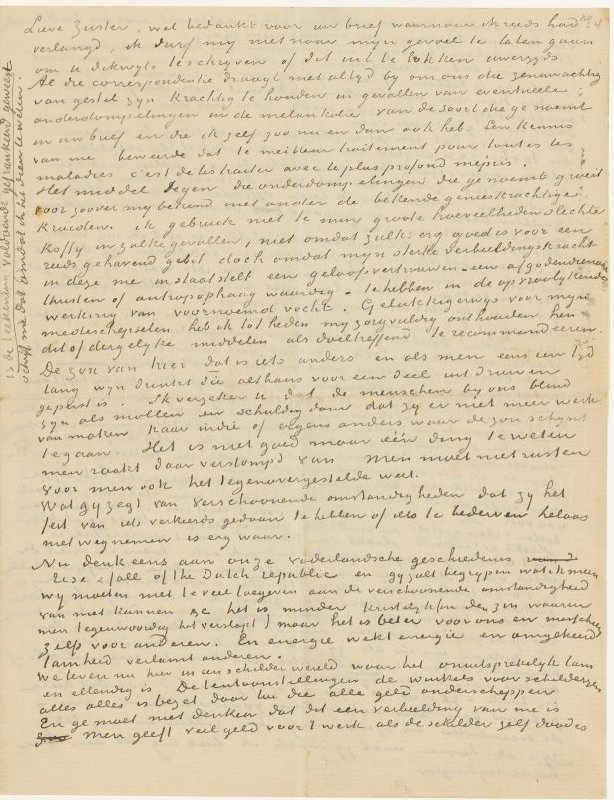 Lieve Zuster, wel bedankt voor uw brief waarnaar ik reeds had
verlangd, ik durf mij niet naar mijn gevoel te laten gaan
om u dikwijls te schrijven of dit uit te lokken uwerzijds
Al die correspondentie draagt niet altijd bij om ons die zenuwachtig
van gestel zijn krachtig te houden in gevallen van eventueele
onderdompelingen in de melankolie van de soort die ge noemt
in uw brief en die ik zelf zoo nu en dan ook heb. Een kennis
van me beweerde dat le meilleur traitement pour toutes les
maladies c'est de les traiter avec le plus profond mépris.
Het middel tegen die onderdompelingen die ge noemt groeit
voor zoover mij bekend niet onder de bekende geneeskrachtige
kruiden. ik gebruik niet te min groote hoeveelheden slechte
koffij in zulke gevallen, niet omdat zulks erg goed is voor een
reeds gehavend gebit doch omdat mijn sterke verbeeldingskracht
in deze me in staat stelt een geloofsvertrouwen – een afgodendienaar
thuisten of antropophaag waardig – te hebben in de opvroolijkende
werking van voornoemd vocht. Gelukkigerwijs voor mijn
medeschepselen heb ik tot heden mij zorgvuldig onthouden hen
dit of dergelijke middelen als doeltreffend te recommandeeren.
De zon van hier dat is iets anders en als men eens een tijd
lang wijn drinkt die althans voor een deel uit druiven
geperst is. Ik verzeker u dat de menschen bij ons blind
zijn als mollen en schuldig daar dat zij er niet meer werk
van maken naar indie of ergens anders waar de zon schijnt
te gaan Het is niet goed maar één ding te weten
men raakt daar verstompt van men moet niet rusten
voor men ook het tegenovergestelde weet.
Wat gij zegt van verschoonende omstandigheden dat zij het
feit van iets verkeerds gedaan te hebben of iets te bederven helaas
niet wegnemen is erg waar.
Nu denk eens aan onze vaderlandsche geschiedenis
rise & fall of the Dutch republic en gij zult begrijpen wat ik meen
wij moeten niet te veel toegeven aan de verschoonende omstandigheid
van niet kunnen ge het is minder kristelijk (in den zin waarin
men tegenwoordig het verslapt) maar het is beter voor ons en misschien
zelfs voor anderen. En energie wekt energie en omgekeerd
lamheid verlamt anderen.
We leven nu hier in een schilderwereld waar het onuitsprekelijk lam
en ellendig is De tentoonstellingen de winkels voor schilderijen
alles alles is bezet door lui die alle geld onderscheppen
En ge moet niet denken dat dit een verbeelding van me is
men geeft veel geld voor 't werk als de schilder zelf dood is
is de teekenen voldoende gefrankeerd geweest
schrijf me dat omdat ik het dien te weten.